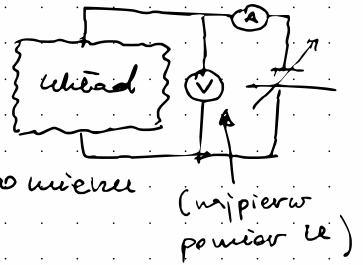 A
układ
V
o mierzu
(najpierw
pomiar U)